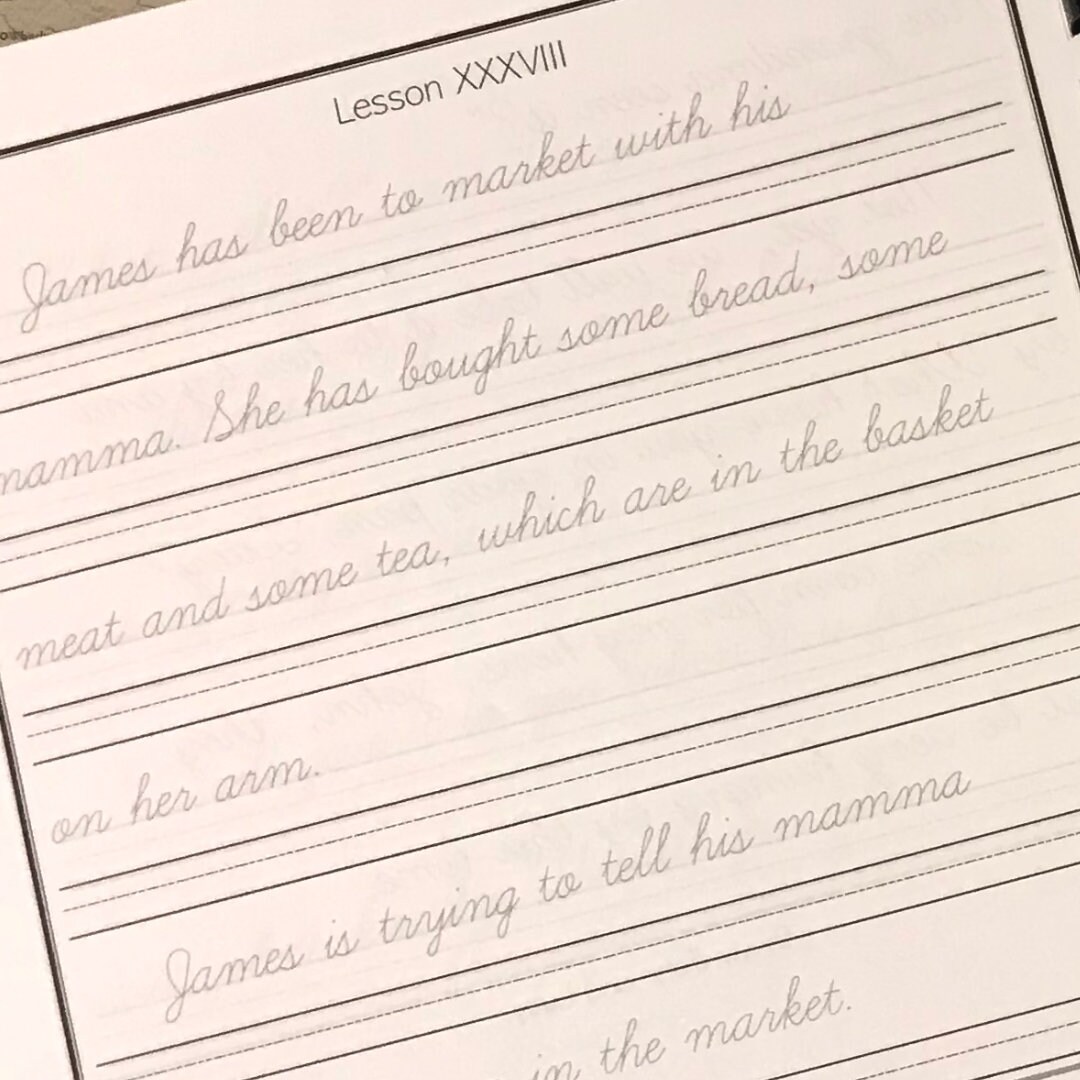 Lesson XXXVIII
James has been to market with his
mamma. She has bought some bread, some
meat and some tea, which are in the basket
on her arm.
James is trying to tell his mamma
in the market.